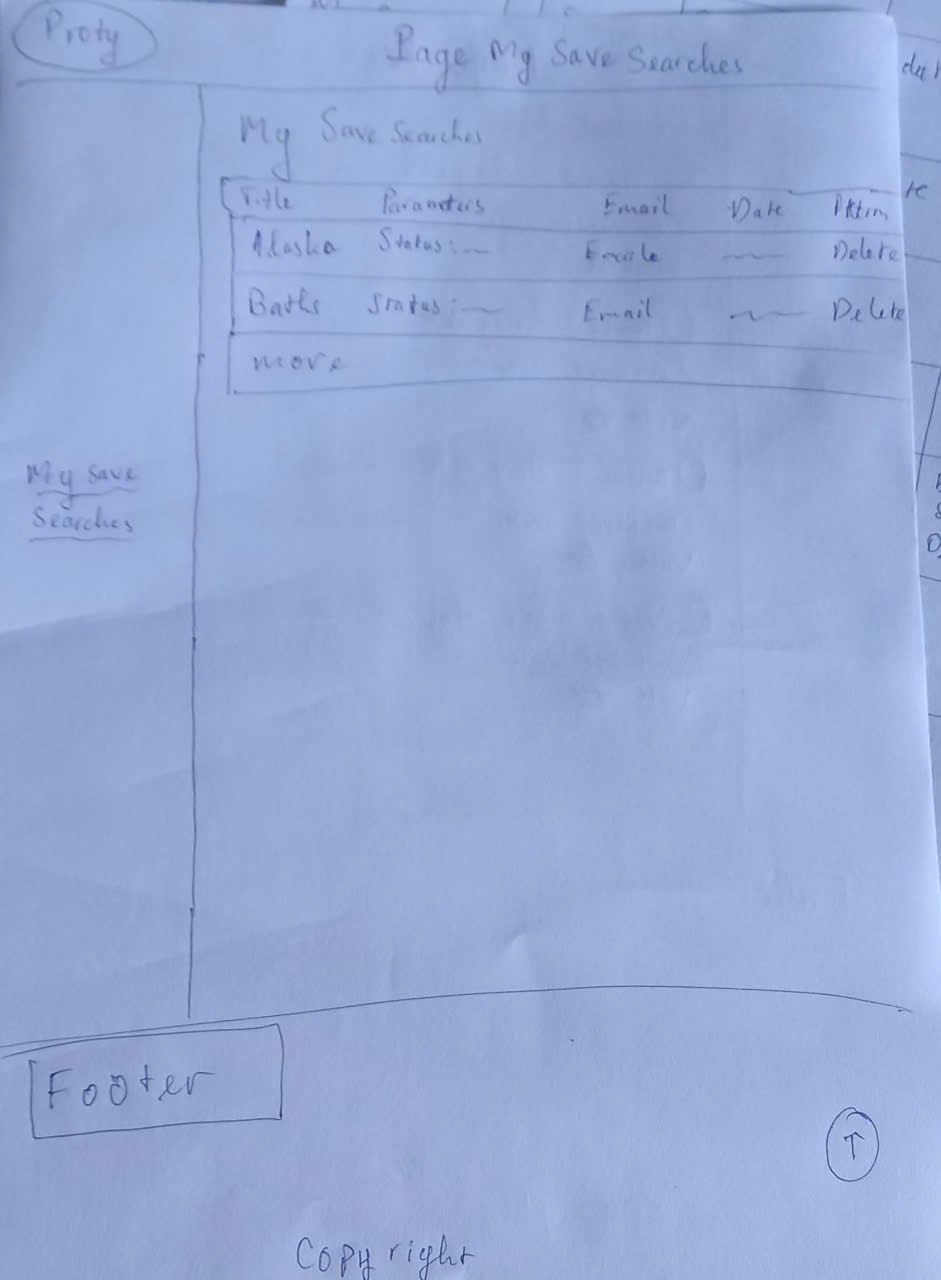 Proty
Page My Save Searches
My Save Searches
Title Parameters Email Date
Alaska Status: Delete
Baths Status: Email Delete
more
My Save
Searches
Footer
↑
Copyright